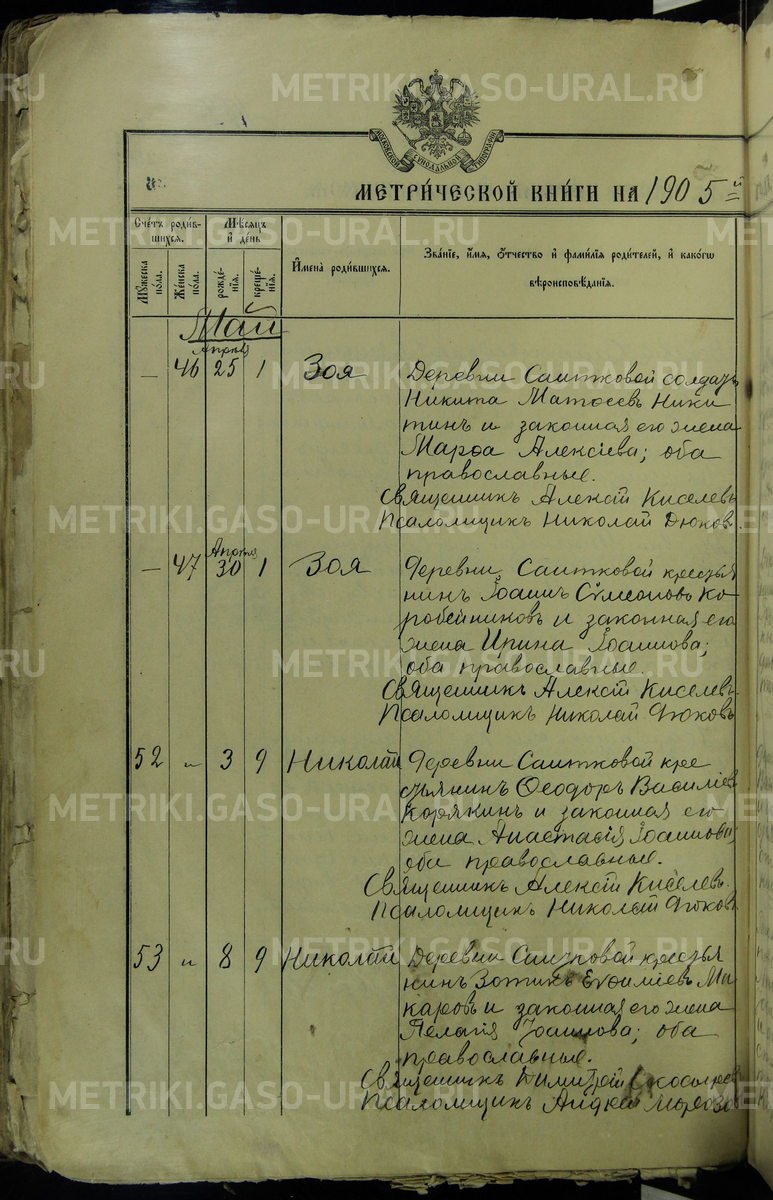 METRIKI.GASO-URAL.RU
МОСКОВСКОЙ СѴНОДАЛЬНОЙ ТИПОГРАФІИ
МЕТРИ́ЧЕСКОЙ КНИ́ГИ НА 1905 й
Сче́тъ роди́вшихся.
Мꙋ́жеска по́ла.
Же́нска по́ла.
Мѣ́сяцъ и҆ де́нь
рожде́нїѧ.
креще́нїѧ.
И҆мена̀ роди́вшихся.
Зва́нїе, и҆́мѧ, ѻ҆́тчество и҆ фами́лїѧ роди́телей, и҆ како́гѡ
вѣроисповѣ́данїѧ.
Май
Апрѣля
— 46 25 1 Зоя Деревни Саитковой солдатъ
Никита Матѳеевъ Ники
тинъ и законная его жена
Марѳа Алексіева; оба
православные.
Священникъ Алексій Киселевъ
Псаломщикъ Николай Дюковъ
Апрѣля
— 47 30 1 Зоя Деревни Саитковой крестья
нинъ Іоаннъ Сѵмеоновъ Ко
робейниковъ и законная его
жена Ирина Іоаннова;
оба православные.
Священникъ Алексій Киселевъ
Псаломщикъ Николай Дюковъ
52 „ 3 9 Николай Деревни Саитковой кре
стьянинъ Ѳеодоръ Василіевъ
Корякинъ и законная его
жена Анастасія Іоаннова;
оба православные.
Священникъ Алексій Киселевъ.
Псаломщикъ Николай Дюковъ
53 „ 8 9 Николай Деревни Саитковой крестья
нинъ Зотикъ Евѳиміевъ Ма
каровъ и законная его жена
Пелагія Іоаннова; оба
православные.
Священникъ Димитрій
Псаломщикъ Андрей